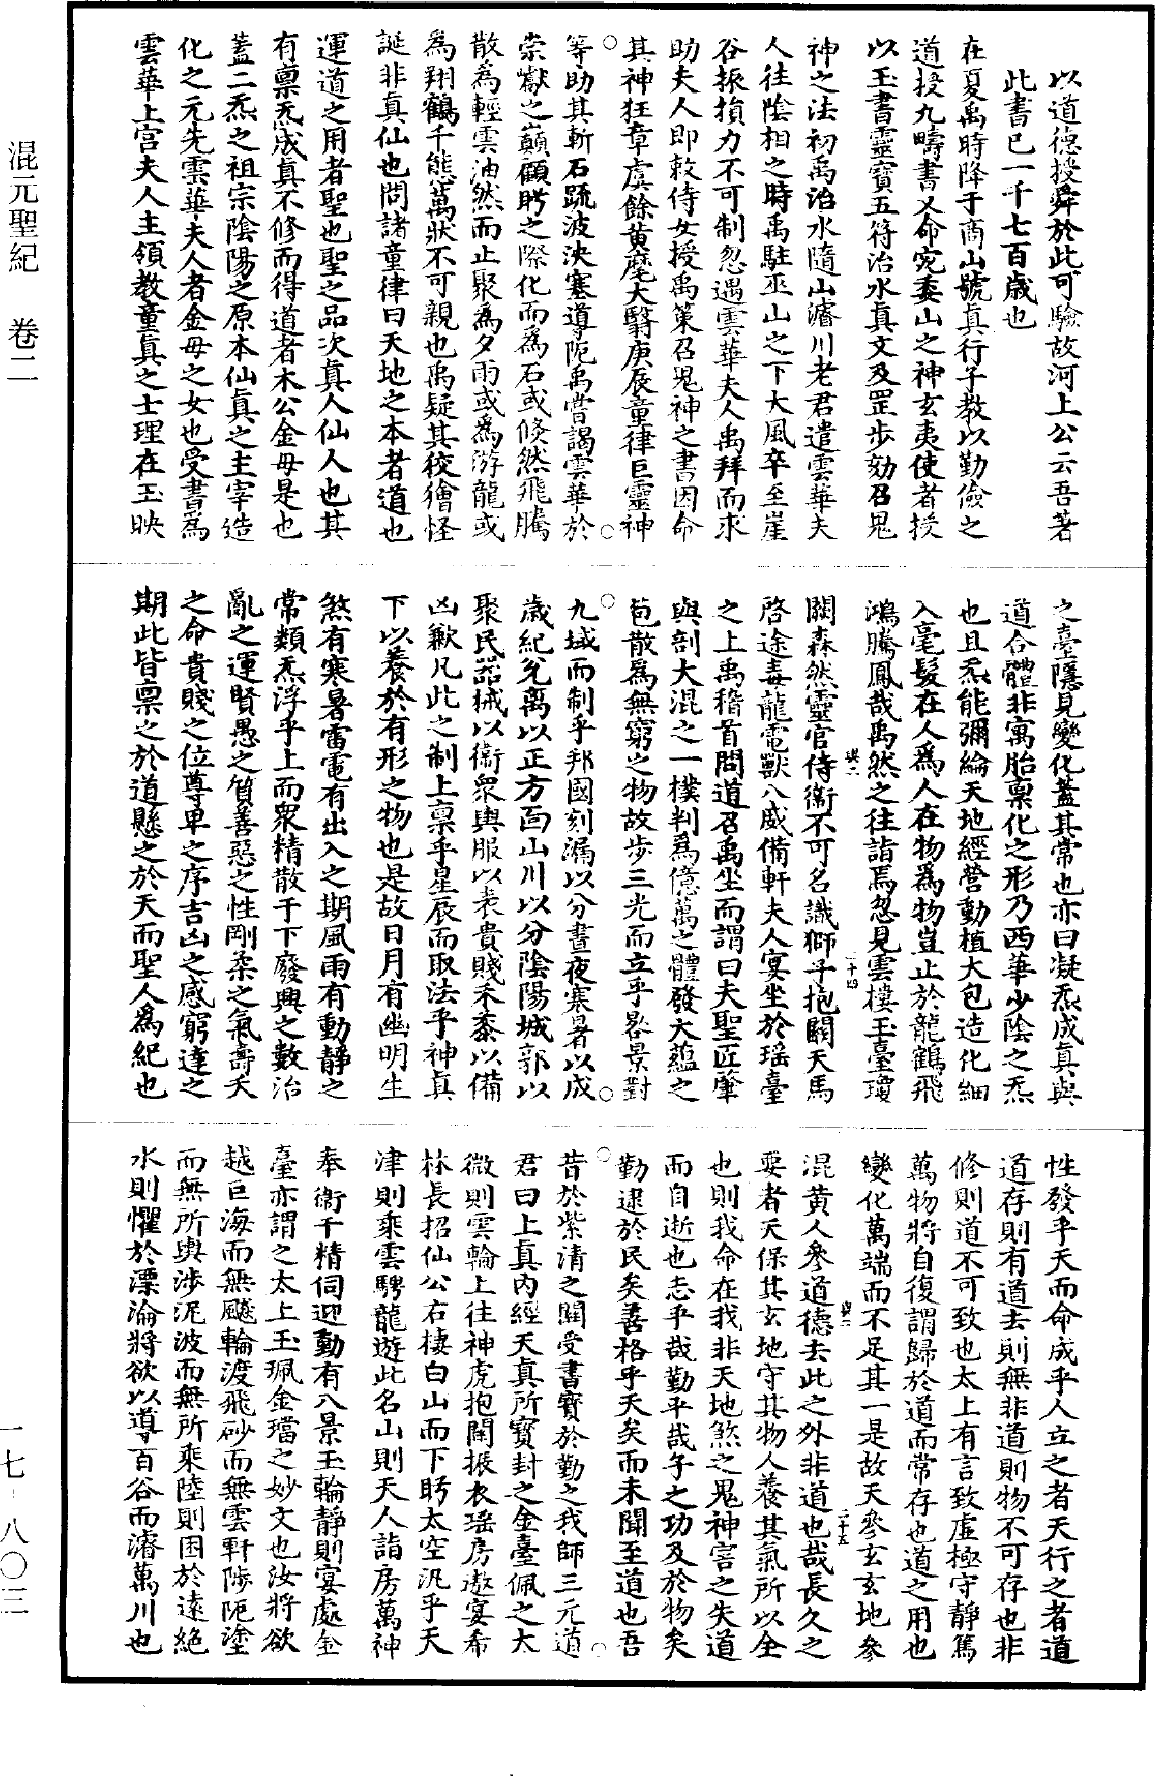 混元聖紀　卷二
一七-八〇三
以道德授舜於此可驗故河上公云吾著
此書已一千七百歲也
在夏禹時降于商山號真行子教以勤儉之
道授九疇書又命宛委山之神玄夷使者授
以玉書靈寶五符治水真文及罡步劾召鬼
神之法初禹治水隨山濬川老君遣雲華夫
人往陰相之時禹駐巫山之下大風卒至崖
谷振損力不可制忽遇雲華夫人禹拜而求
助夫人即敕侍女授禹策召鬼神之書因命
其神狂章虞餘黃麾大翳庚辰童律巨靈神
等助其斬石疏波決塞導阨禹嘗謁雲華於
崇巘之巔顧盻之際化而為石或倏然飛騰
散為輕雲油然而止聚為夕雨或為游龍或
為翔鶴千態萬狀不可親也禹疑其狡獪怪
誕非真仙也問諸童律曰天地之本者道也
運道之用者聖也聖之品次真人仙人也其
有稟炁成真不修而得道者木公金母是也
蓋二炁之祖宗陰陽之原本仙真之主宰造
化之元先雲華夫人者金母之女也受書為
雲華上宮夫人主領教童真之士理在玉映
之臺隱見變化蓋其常也亦曰凝炁成真與
道合體非寓胎稟化之形乃西華少陰之炁
也且炁能彌綸天地經營動植大包造化細
入毫髮在人為人在物為物豈止於龍鶴飛
鴻騰鳳哉禹然之往詣焉忽見雲樓玉臺瓊
闕森然靈官侍衞不可名識獅子抱關天馬
啓途毒龍電獸八威備軒夫人宴坐於瑶臺
之上禹稽首問道召禹坐而謂曰夫聖匠肇
與剖大混之一樸判為億萬之體發大蘊之
苞散為無窮之物故步三光而立乎晷景封
九域而制乎邦國刻漏以分晝夜寒暑以成
歲紀兌离以正方面山川以分陰陽城郭以
聚民器械以衞衆輿服以表貴賤禾黍以備
凶歉凡此之制上稟乎星辰而取法乎神真
下以養於有形之物也是故日月有幽明生
煞有寒暑雷電有出入之期風雨有動靜之
常類炁浮乎上而衆精散于下廢興之數治
亂之運賢愚之質善惡之性剛柔之氣壽夭
之命貴賤之位尊卑之序吉凶之感窮達之
期此皆稟之於道懸之於天而聖人為紀也
性發乎天而命成乎人立之者天行之者道
道存則有道去則無非道則物不可存也非
修則道不可致也太上有言致虛極守靜篤
萬物將自復謂歸於道而常存也道之用也
變化萬端而不足其一是故天參玄玄地參
混黃人參道德去此之外非道也哉長久之
要者天保其玄地守其物人養其氣所以全
也則我命在我非天地煞之鬼神害之失道
而自逝也志乎哉勤乎哉子之功及於物矣
勤逮於民矣善格乎天矣而未聞至道也吾
昔於紫清之闕受書寶於勤之我師三元道
君曰上真內經天真所寶封之金臺佩之太
微則雲輪上往神虎抱關振衣瑶房遨宴希
林長招仙公右棲白山而下眄太空汎乎天
津則乘雲騁龍遊此名山則天人詣房萬神
奉衞千精伺迎動有八景玉輪靜則宴處金
臺亦謂之太上玉珮金璫之妙文也汝將欲
越巨海而無飈輪渡飛砂而無雲軒陟阨塗
而無所輿涉泥波而無所乘陸則困於遠絕
水則懼於漂淪將欲以導百谷而濬萬川也